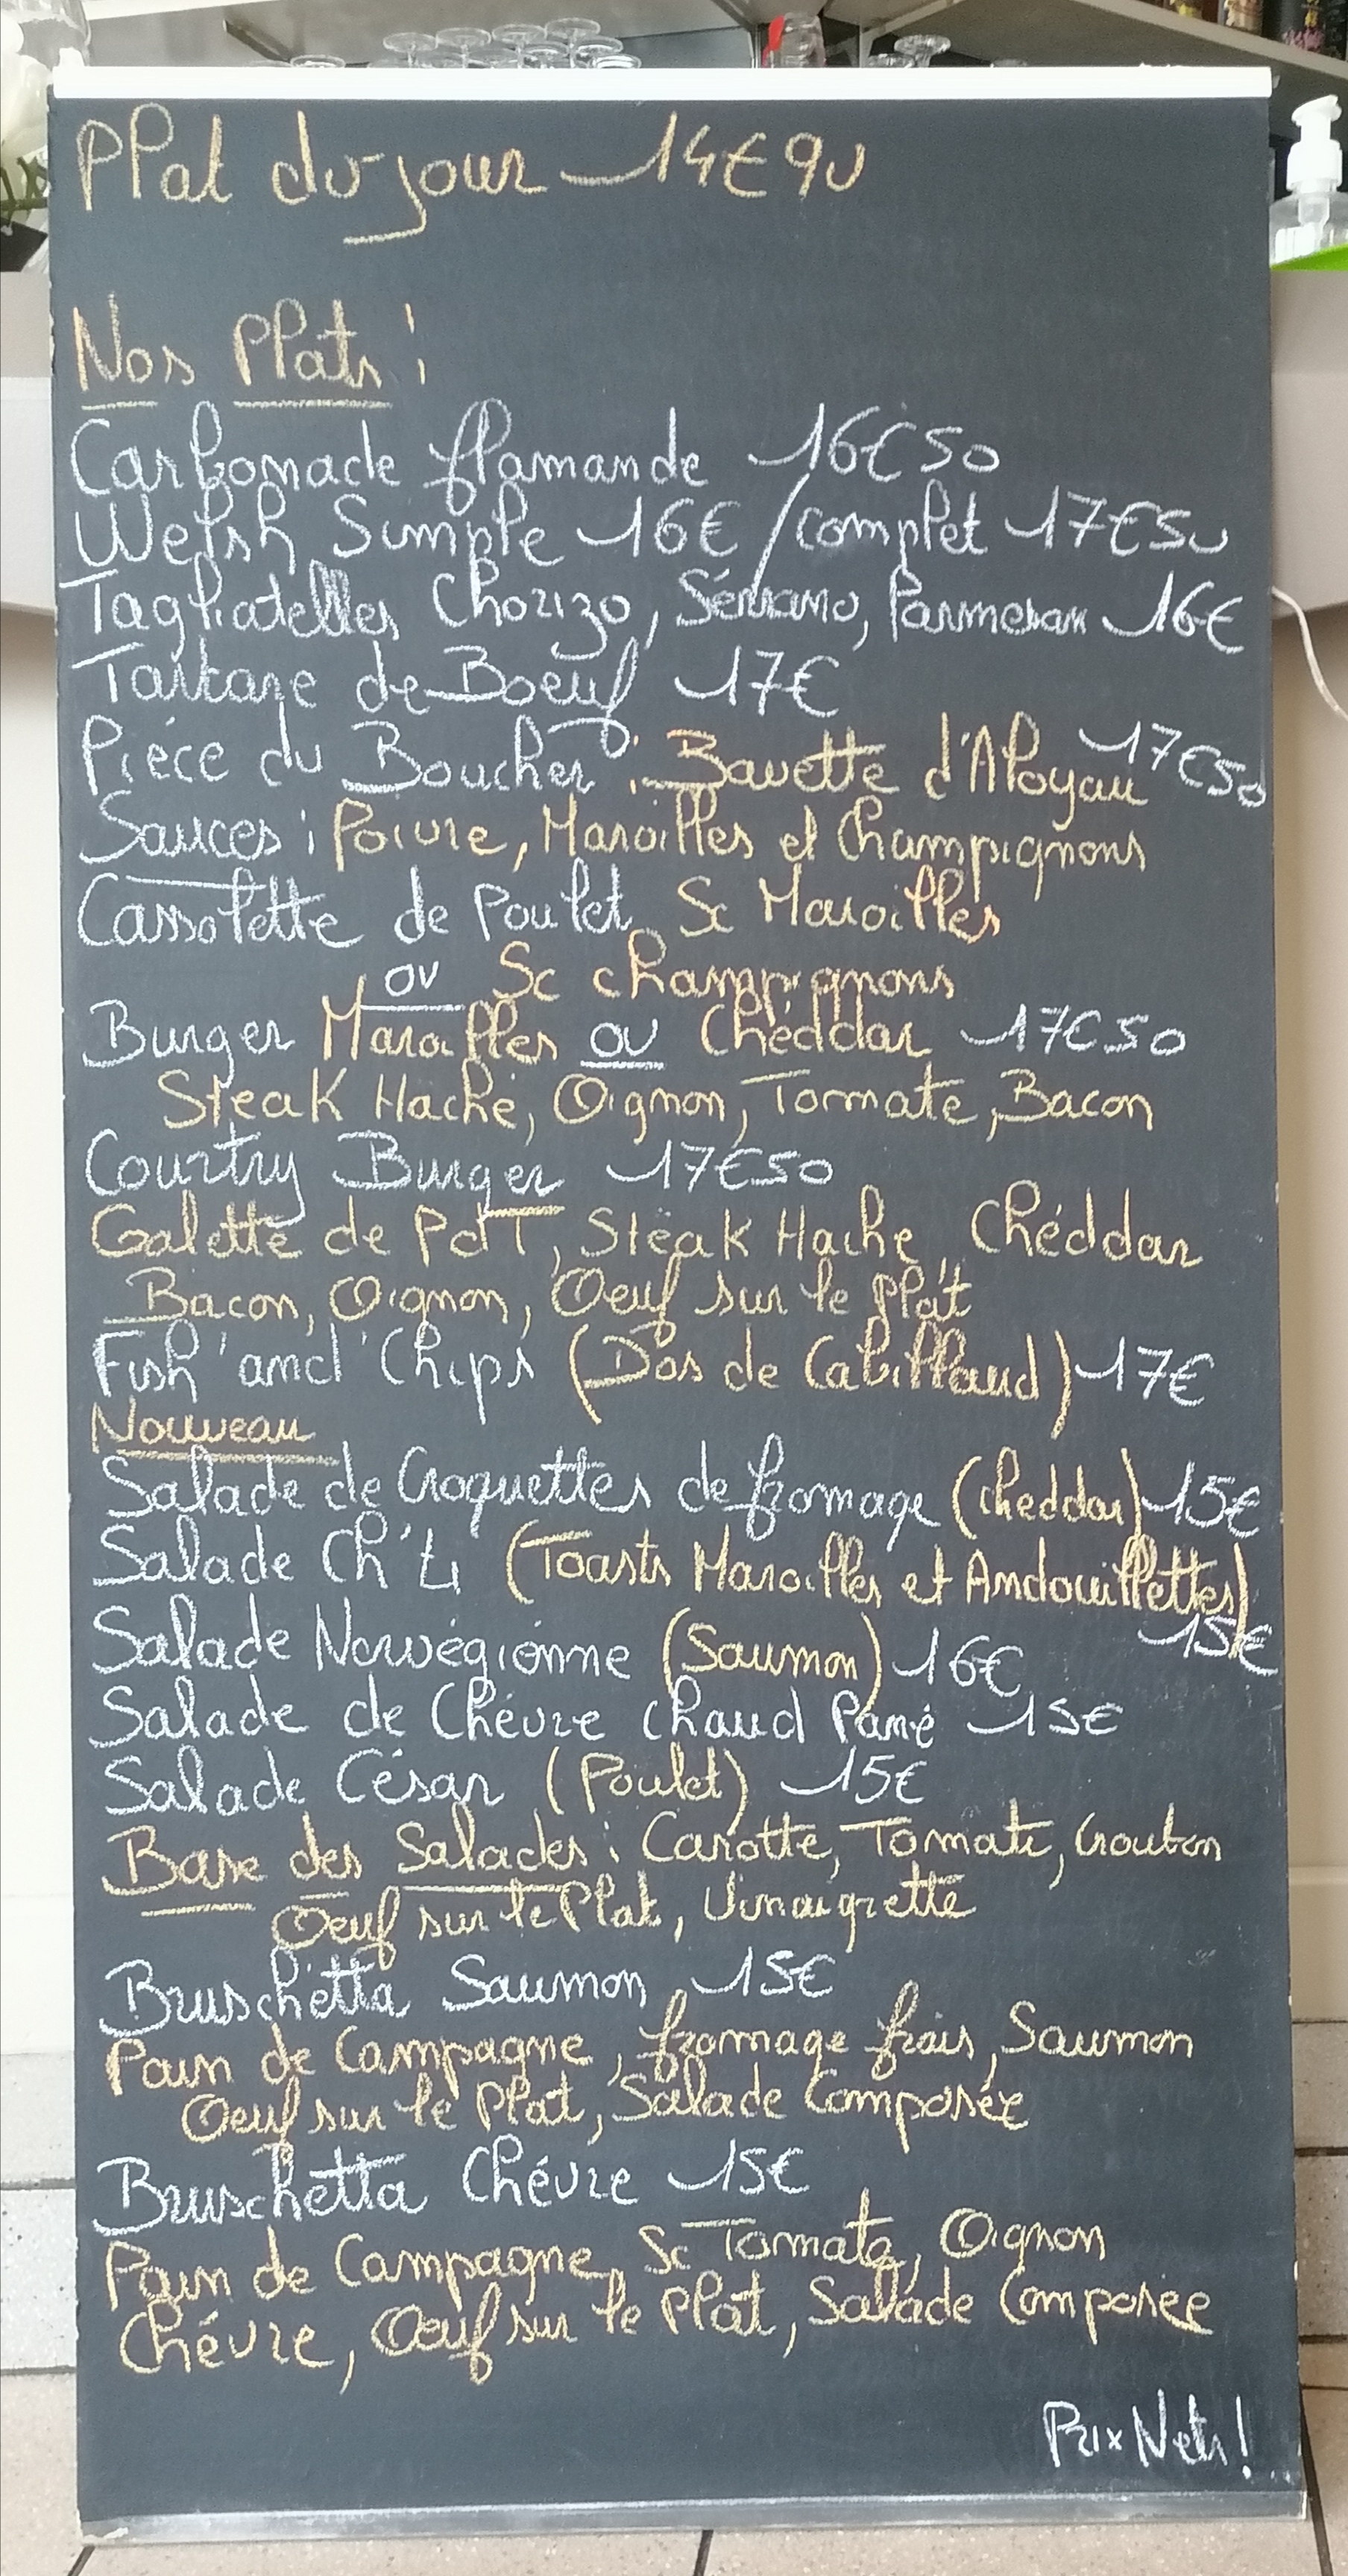 Plat du jour 14€90
Nos Plats :
Carbonnade flamande 16€50
Welsh Simple 16€ / complet 17€50
Tagliatelles Chorizo, Sérrano, Parmesan 16€
Tartare de Boeuf 17€
Piéce du Boucher : Bavette d'Aloyau 17€50
Sauces : Poivre, Maroilles et Champignons
Cassolette de Poulet Sc Maroilles
ou Sc champignons
Burger Maroilles ou Chéddar 17€50
Steak Haché, Oignon, Tomate, Bacon
Courtry Burger 17€50
Galette de PdT, Steak Haché, Chéddar
Bacon, Oignon, Oeuf sur le plat
Fish'and'Chips (Dos de Cabillaud) 17€
Nouveau
Salade de Croquettes de fromage (cheddar) 15€
Salade Ch'ti (Toasts Maroilles et Andouillettes)
15€
Salade Norwégiénne (Saumon) 16€
Salade de Chévre chaud Pané 15€
Salade César (Poulet) 15€
Base des Salades : Carotte, Tomate, Crouton
Oeuf sur le Plat, Vinaigrette
Bruschetta Saumon 15€
Pain de Campagne, fromage frais, Saumon
Oeuf sur le Plat, Salade Composée
Bruschetta Chévre 15€
Pain de Campagne, Sc Tomate, Oignon
Chévre, Oeuf sur le Plat, Salade Composée
Prix Nets !